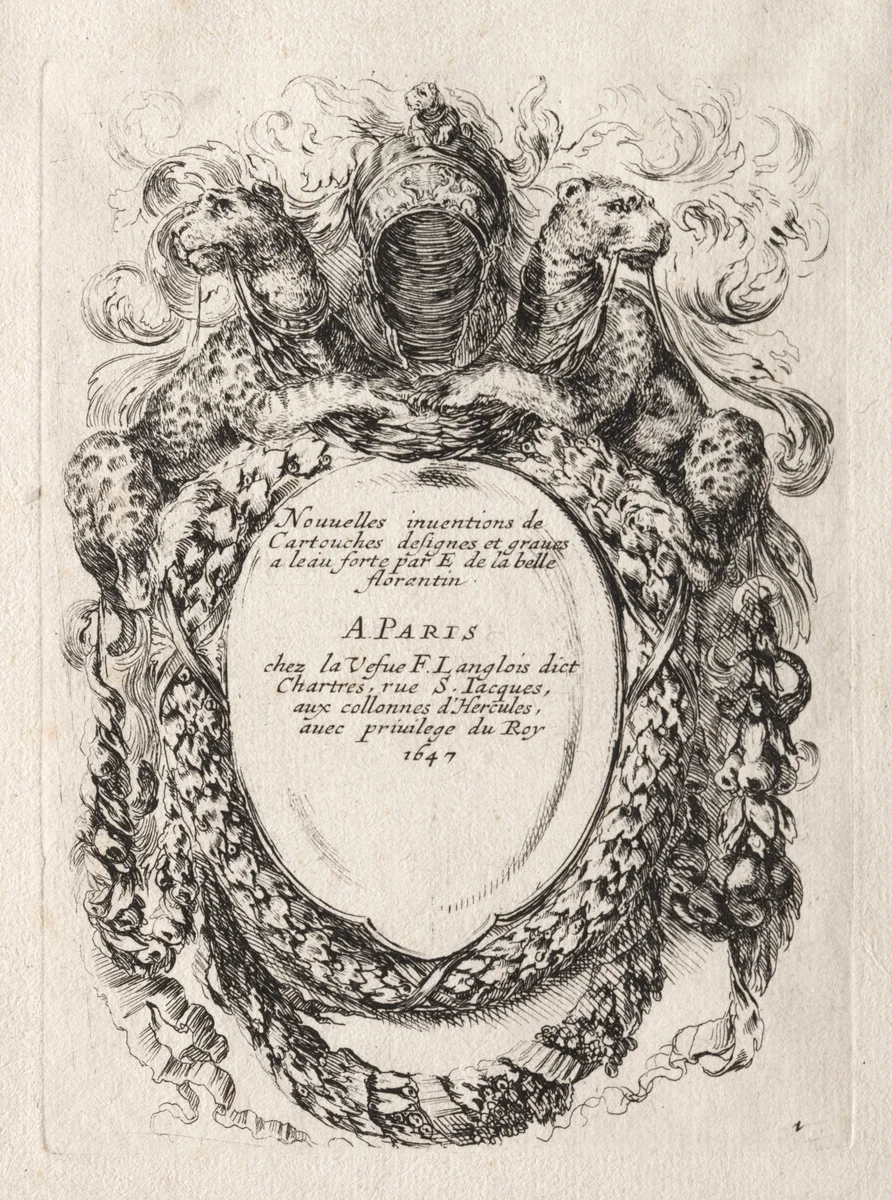 Nouuelles inuentions de
Cartouches deſignes et graues
a leau forte par E de la belle
florantin.
A PARIS
chez la Vefue F. Langlois dict
Chartres, rue S. Iacques,
aux collonnes d'Hercules,
auec priuilege du Roy
1647
1